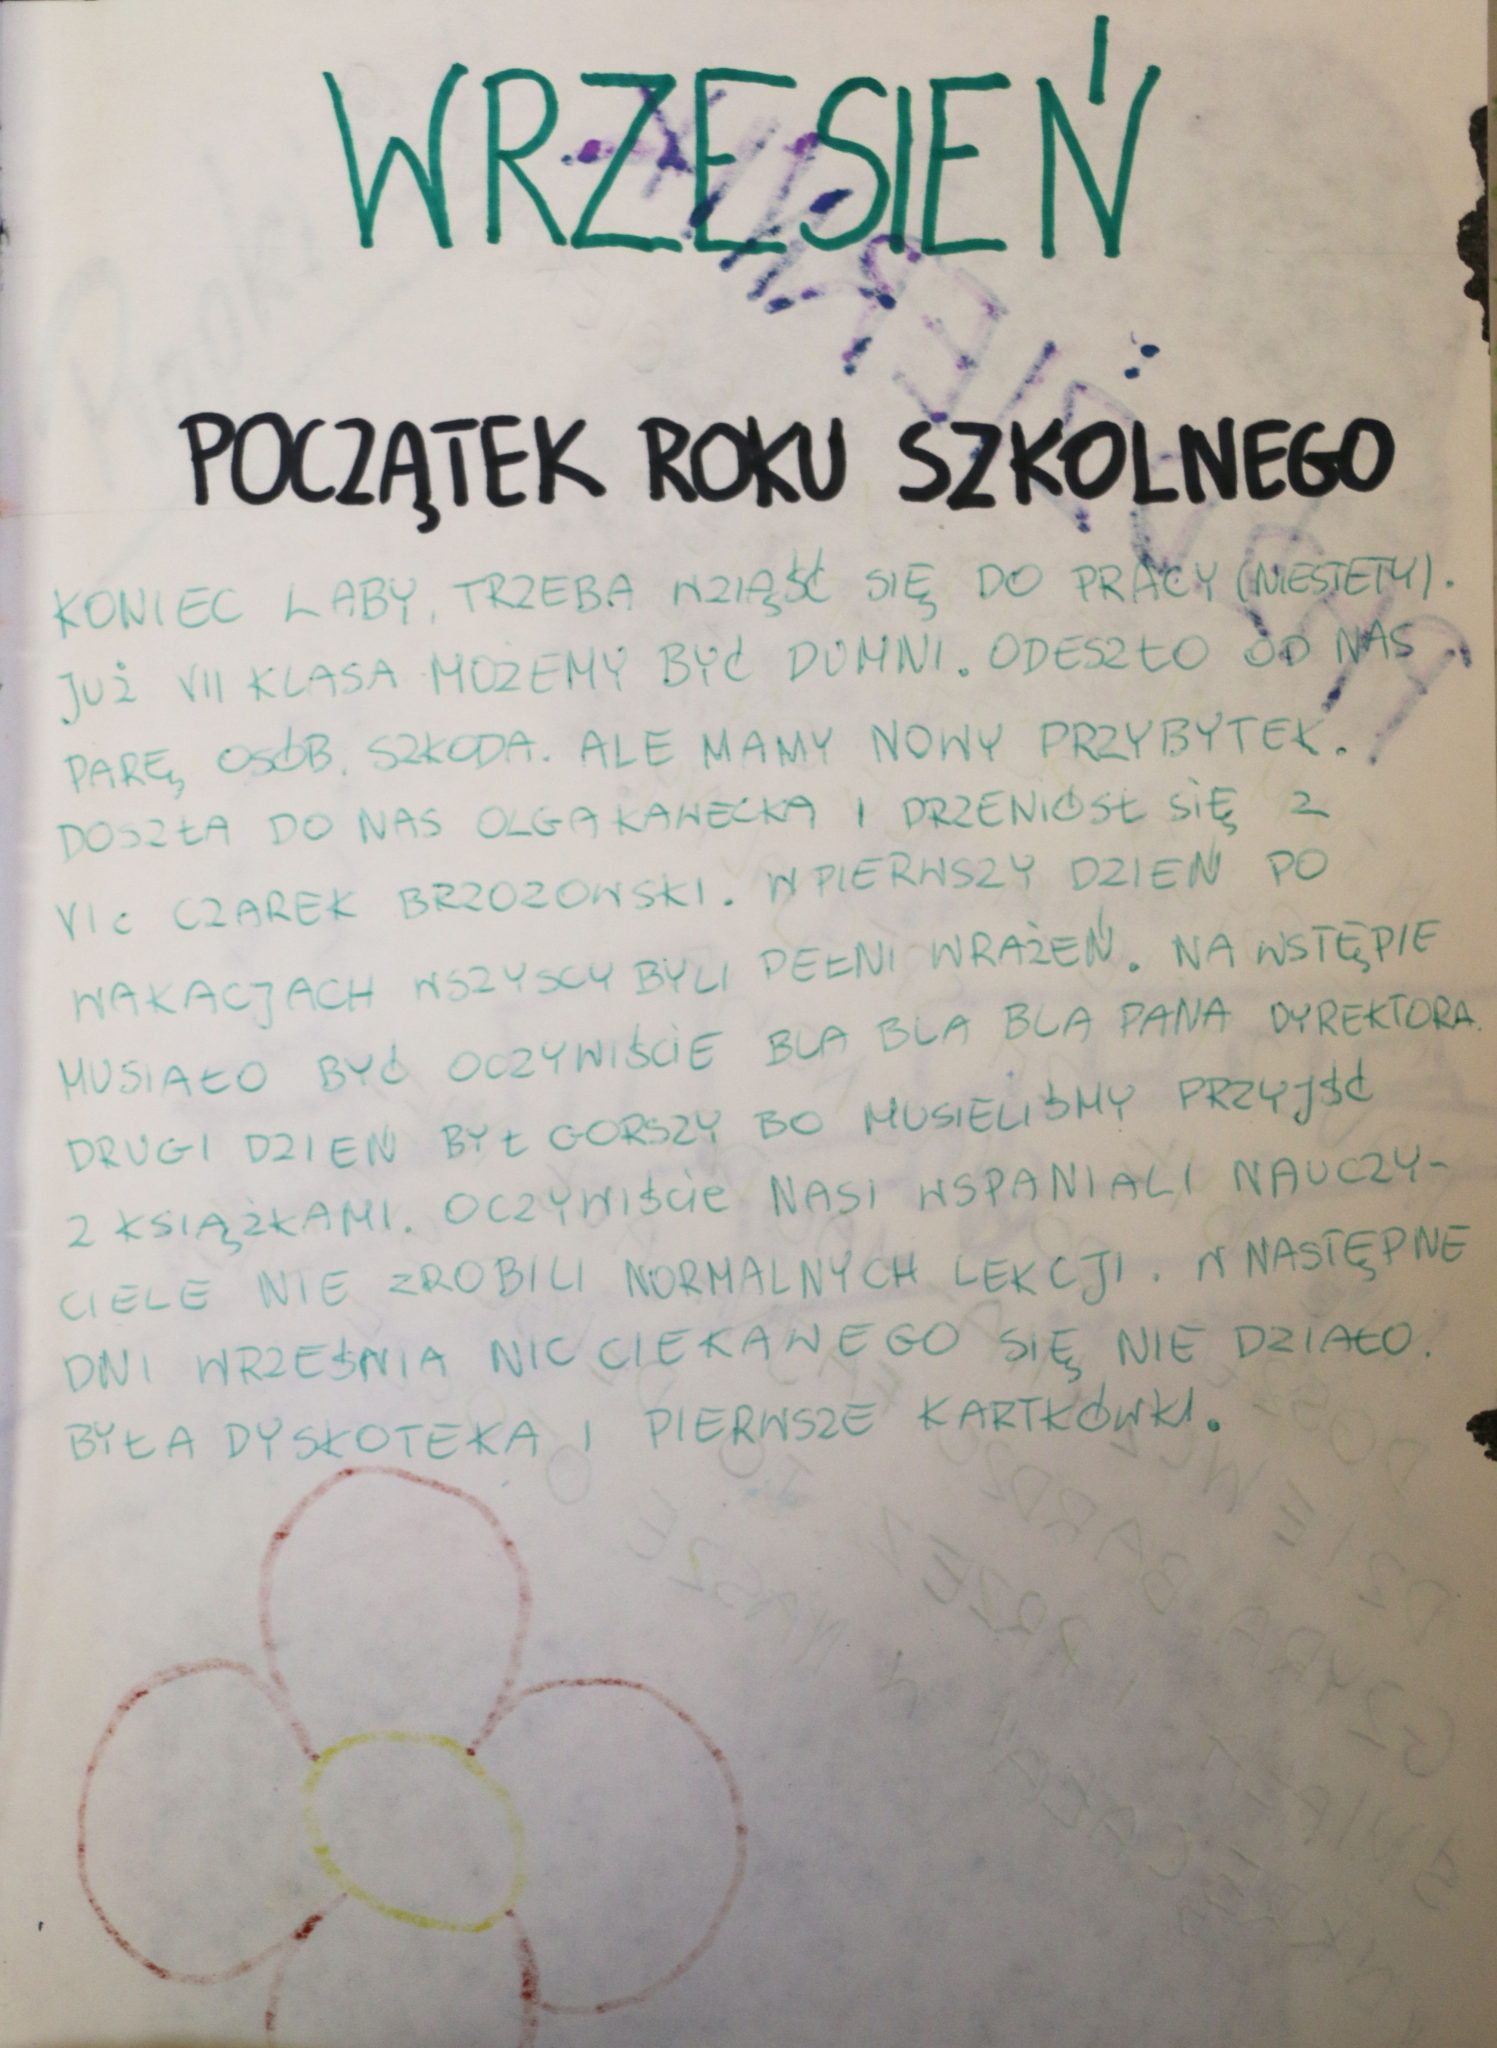 WRZESIEŃ
POCZĄTEK ROKU SZKOLNEGO
KONIEC LABY, TRZEBA WZIĄŚĆ SIĘ DO PRACY (NIESTETY).
JUŻ VII KLASA MOŻEMY BYĆ DUMNI. ODESZŁO OD NAS
PARĘ OSÓB, SZKODA. ALE MAMY NOWY PRZYBYTEK.
DOSZŁA DO NAS OLGA KAWECKA I PRZENIÓSŁ SIĘ Z
VI c CZAREK BRZOZOWSKI. W PIERWSZY DZIEŃ PO
WAKACJACH WSZYSCY BYLI PEŁNI WRAŻEŃ. NA WSTĘPIE
MUSIAŁO BYĆ OCZYWIŚCIE BLA BLA BLA PANA DYREKTORA.
DRUGI DZIEŃ BYŁ GORSZY BO MUSIELIŚMY PRZYJŚĆ
Z KSIĄŻKAMI. OCZYWIŚCIE NASI WSPANIALI NAUCZY-
CIELE NIE ZROBILI NORMALNYCH LEKCJI. W NASTĘPNE
DNI WRZEŚNIA NIC CIEKAWEGO SIĘ NIE DZIAŁO.
BYŁA DYSKOTEKA I PIERWSZE KARTKÓWKI.